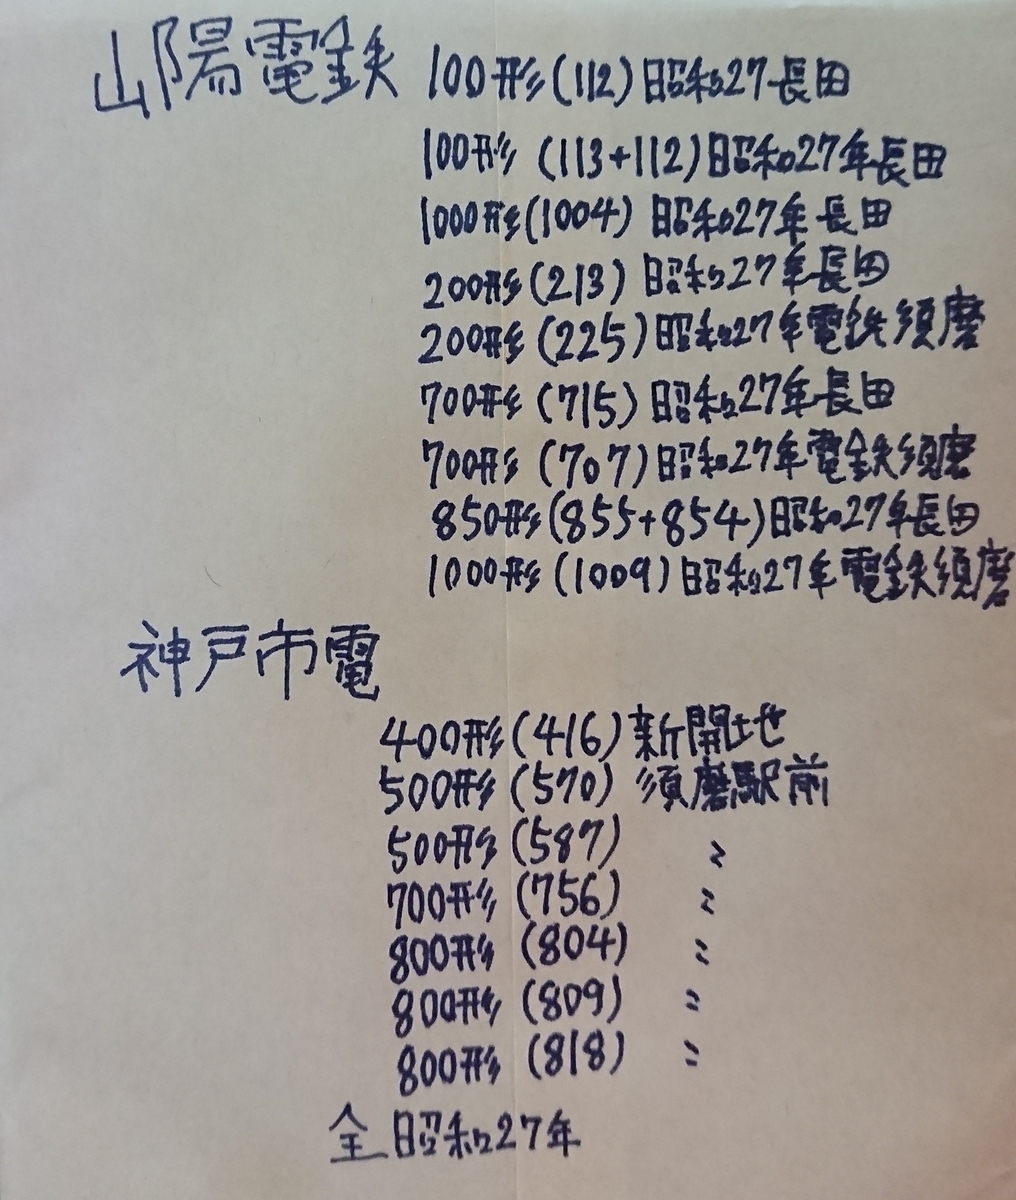 山陽電鉄 100形(112)昭和27長田
100形 (113+112)昭和27年長田
1000形(1004) 昭和27年長田
200形(213) 昭和27年長田
200形(225)昭和27年電鉄須磨
700形 (715) 昭和27年長田
700形 (707)昭和27年電鉄須磨
850形(855+854)昭和27年長田
1000形 (1009)昭和27年電鉄須磨
神戸市電
400形(416)新開地
500形 (570) 須磨駅前
500形(587) 〃
700形 (756) 〃
800形 (804) 〃
800形 (809) 〃
800形 (818) 〃
全昭和27年